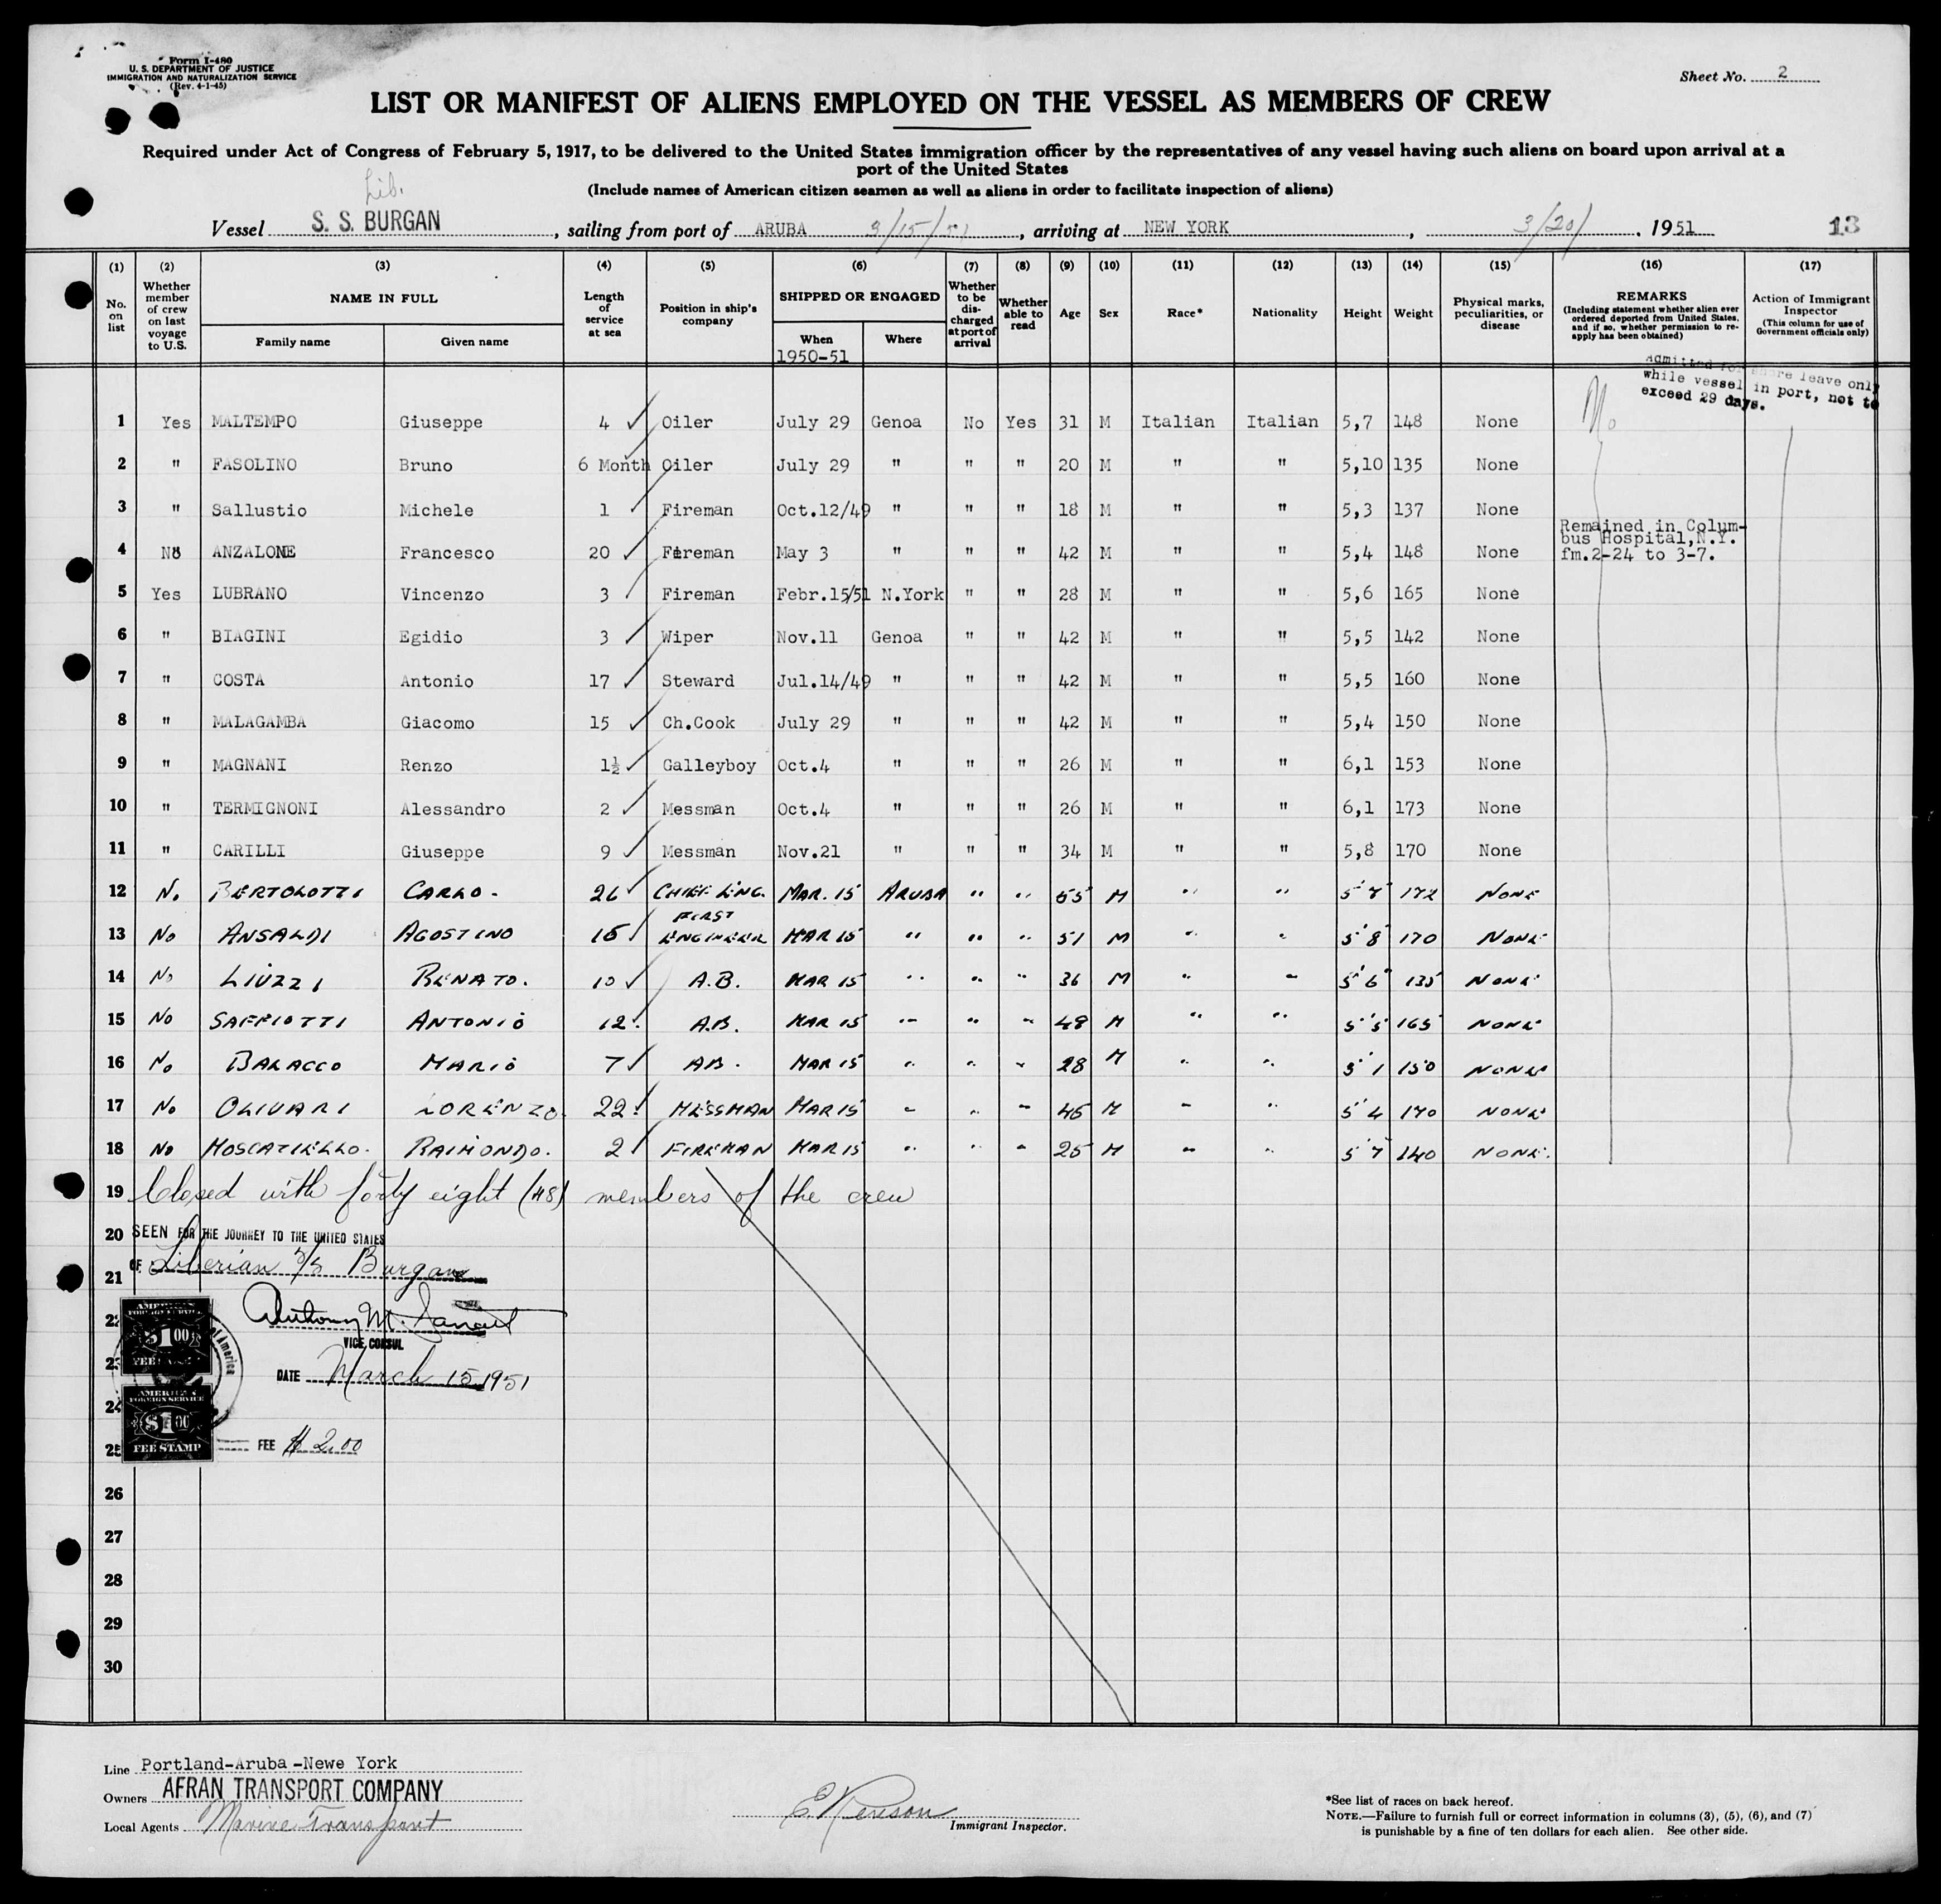 Form I-480
U. S. DEPARTMENT OF JUSTICE
IMMIGRATION AND NATURALIZATION SERVICE
(Rev. 4-1-45)
Sheet No. 2
LIST OR MANIFEST OF ALIENS EMPLOYED ON THE VESSEL AS MEMBERS OF CREW
Required under Act of Congress of February 5, 1917, to be delivered to the United States immigration officer by the representatives of any vessel having such aliens on board upon arrival at a
port of the United States
(Include names of American citizen seamen as well as aliens in order to facilitate inspection of aliens)
Lib.
Vessel S. S. BURGAN, sailing from port of ARUBA 3/15/51, arriving at NEW YORK, 3/20/, 1951 13
(1) (2) (3) (4) (5) (6) (7) (8) (9) (10) (11) (12) (13) (14) (15) (16) (17)
No. on list
Whether member of crew on last voyage to U.S.
NAME IN FULL
Family name Given name
Length of service at sea
Position in ship's company
SHIPPED OR ENGAGED
When Where
1950-51
Whether to be discharged at port of arrival
Whether able to read
Age Sex Race* Nationality Height Weight
Physical marks, peculiarities, or disease
REMARKS
(Including statement whether alien ever ordered deported from United States, and if so, whether permission to re-apply has been obtained)
Action of Immigrant Inspector
(This column for use of Government officials only)
Admitted for shore leave only
while vessel in port, not to
exceed 29 days.
1 Yes MALTEMPO Giuseppe 4 Oiler July 29 Genoa No Yes 31 M Italian Italian 5,7 148 None No
2 " FASOLINO Bruno 6 Month Oiler July 29 " " " 20 M " " 5,10 135 None
3 " Sallustio Michele 1 Fireman Oct.12/49 " " " 18 M " " 5,3 137 None
Remained in Colum-
bus Hospital,N.Y.
4 No ANZALONE Francesco 20 Fireman May 3 " " " 42 M " " 5,4 148 None fm.2-24 to 3-7.
5 Yes LUBRANO Vincenzo 3 Fireman Febr.15/51 N.York " " 28 M " " 5,6 165 None
6 " BIAGINI Egidio 3 Wiper Nov.11 Genoa " " 42 M " " 5,5 142 None
7 " COSTA Antonio 17 Steward Jul.14/49 " " " 42 M " " 5,5 160 None
8 " MALAGAMBA Giacomo 15 Ch.Cook July 29 " " " 42 M " " 5,4 150 None
9 " MAGNANI Renzo 1½ Galleyboy Oct.4 " " " 26 M " " 6,1 153 None
10 " TERMIGNONI Alessandro 2 Messman Oct.4 " " " 26 M " " 6,1 173 None
11 " CARILLI Giuseppe 9 Messman Nov.21 " " " 34 M " " 5,8 170 None
12 No BERTOLOTTI CARLO. 26 CHIEF ENG. MAR. 15 ARUBA " " 55 M " " 5'7" 172 NONE
13 No ANSALDI AGOSTINO 16 FIRST ENGINEER MAR 15 " " " 51 M " " 5'8" 170 NONE
14 No LIUZZI RENATO. 10 A.B. MAR 15 " " " 36 M " " 5'6" 135 NONE
15 No SAFFIOTTI ANTONIO 12 A.B. MAR 15 " " " 48 M " " 5'5" 165 NONE
16 No BALACCO MARIO 7 AB. MAR 15 " " " 28 M " " 5'1 150 NONE
17 No OLIVARI LORENZO. 22 MESSMAN MAR 15 " " " 46 M " " 5'4 170 NONE
18 No MOSCATIELLO. RAIMONDO. 2 FIREMAN MAR 15 " " " 25 M " " 5'7" 140 NONE.
19 Closed with forty eight (48) members of the crew
20 SEEN FOR THE JOURNEY TO THE UNITED STATES
21 OF Liberian S/S Burgan
22 Anthony M.
VICE CONSUL
23 DATE March 15, 1951
24
25 FEE $ 2.00
AMERICAN
FOREIGN SERVICE
$1.00
FEE STAMP
AMERICAN
FOREIGN SERVICE
$1.00
FEE STAMP
of America
26
27
28
29
30
Line Portland-Aruba-Newe York
Owners AFRAN TRANSPORT COMPANY
Local Agents Marine Transport
Immigrant Inspector.
*See list of races on back hereof.
NOTE.—Failure to furnish full or correct information in columns (3), (5), (6), and (7)
is punishable by a fine of ten dollars for each alien. See other side.